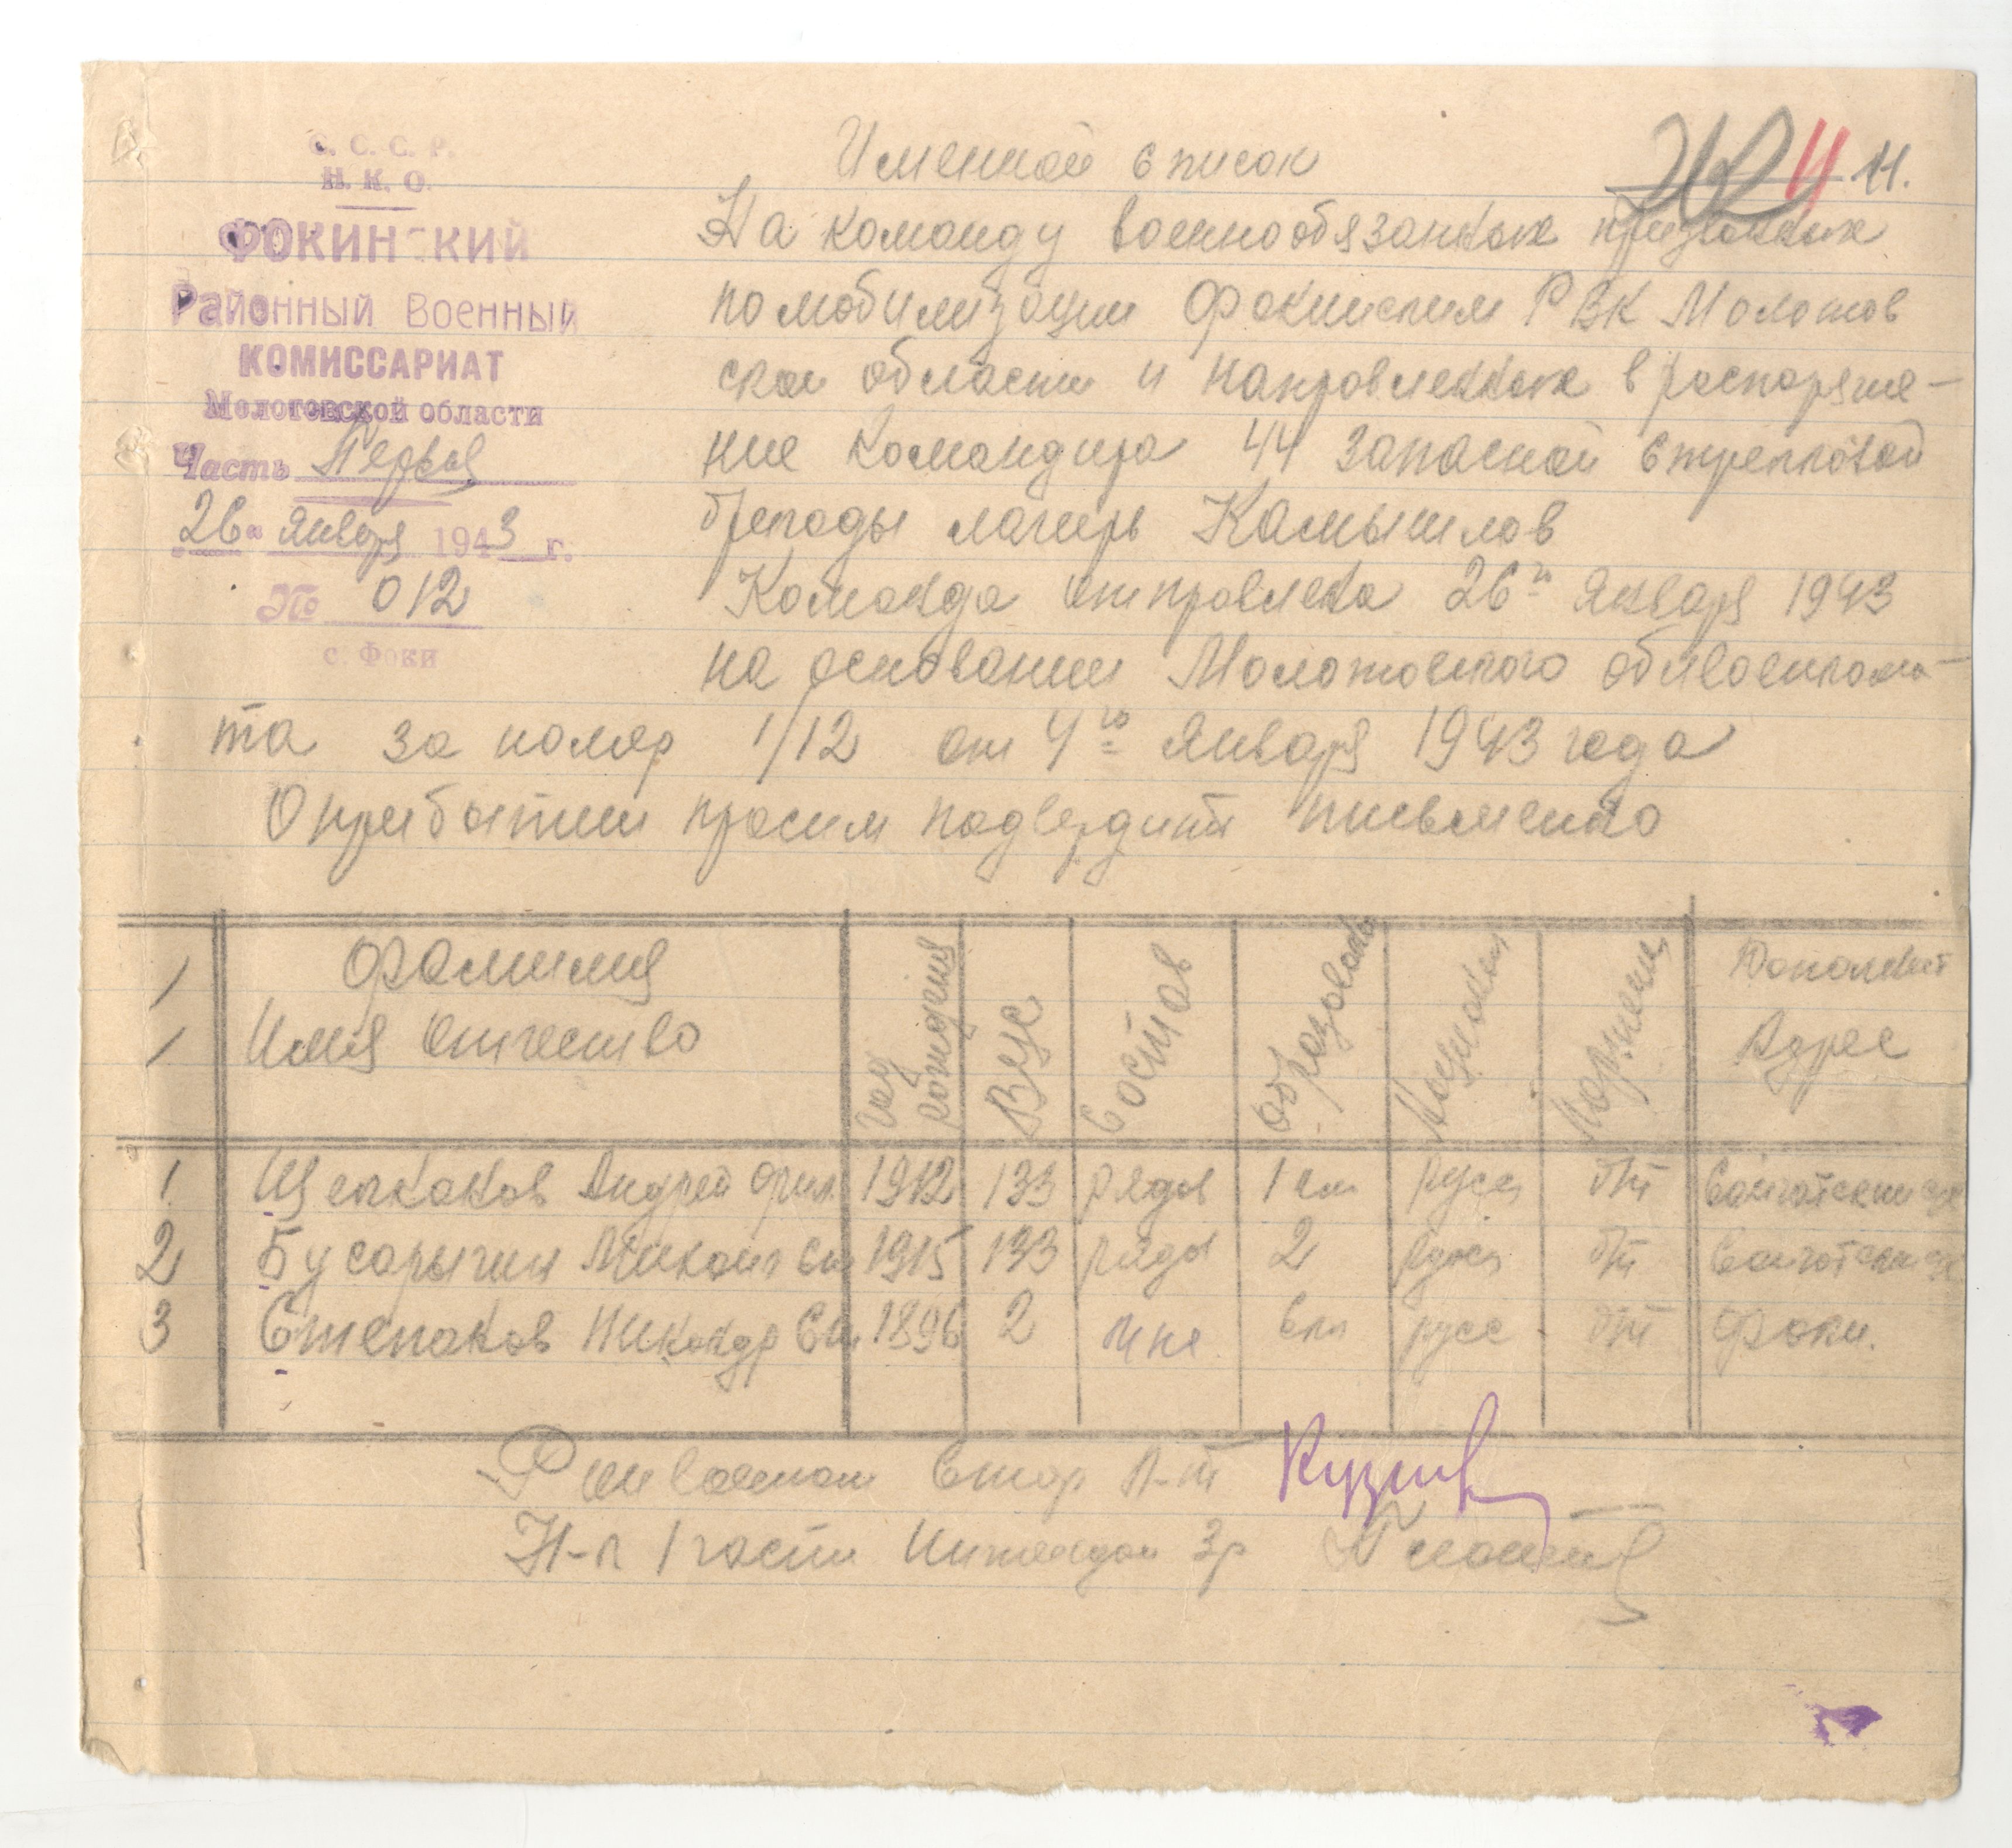 С. С. С. Р.
Н. К. О.
ФОКИНСКИЙ
Районный Военный
КОМИССАРИАТ
Молотовской области
Часть Первая
„26“ января 1943 г.
№ 012
с. Фоки
11 11.
Именной список
На команду военнообязанных призванных
по мобилизации Фокинским РВК Молотов
ской области и направленных в распоряже-
ние командира 44 запасной стрелковой
бригады лагерь Камышлов
Команда отправлена 26го января 1943
на основании Молотовского облвоенкома-
та за номер 1/12 от 4го января 1943 года
О прибытии просим подвердить письменно
Фамилия
Имя Отчество
Год рождения
ВУС
Состав
Образован
Национал
Партийн
Домашний
Адрес
1 Щелканов Андрей Фил. 1912 133 рядов 1 кл русск б/п Сайгатский с/с
2 Бусарыгин Михаил 1915 133 рядов 2 русск б/п Сайгатский с/с
3 Степанов Никандр 1896 2 мнс 6кл русс б/п Фоки.
Райвоенком Стар Л-т
Н-к 1 части Интендан 3р